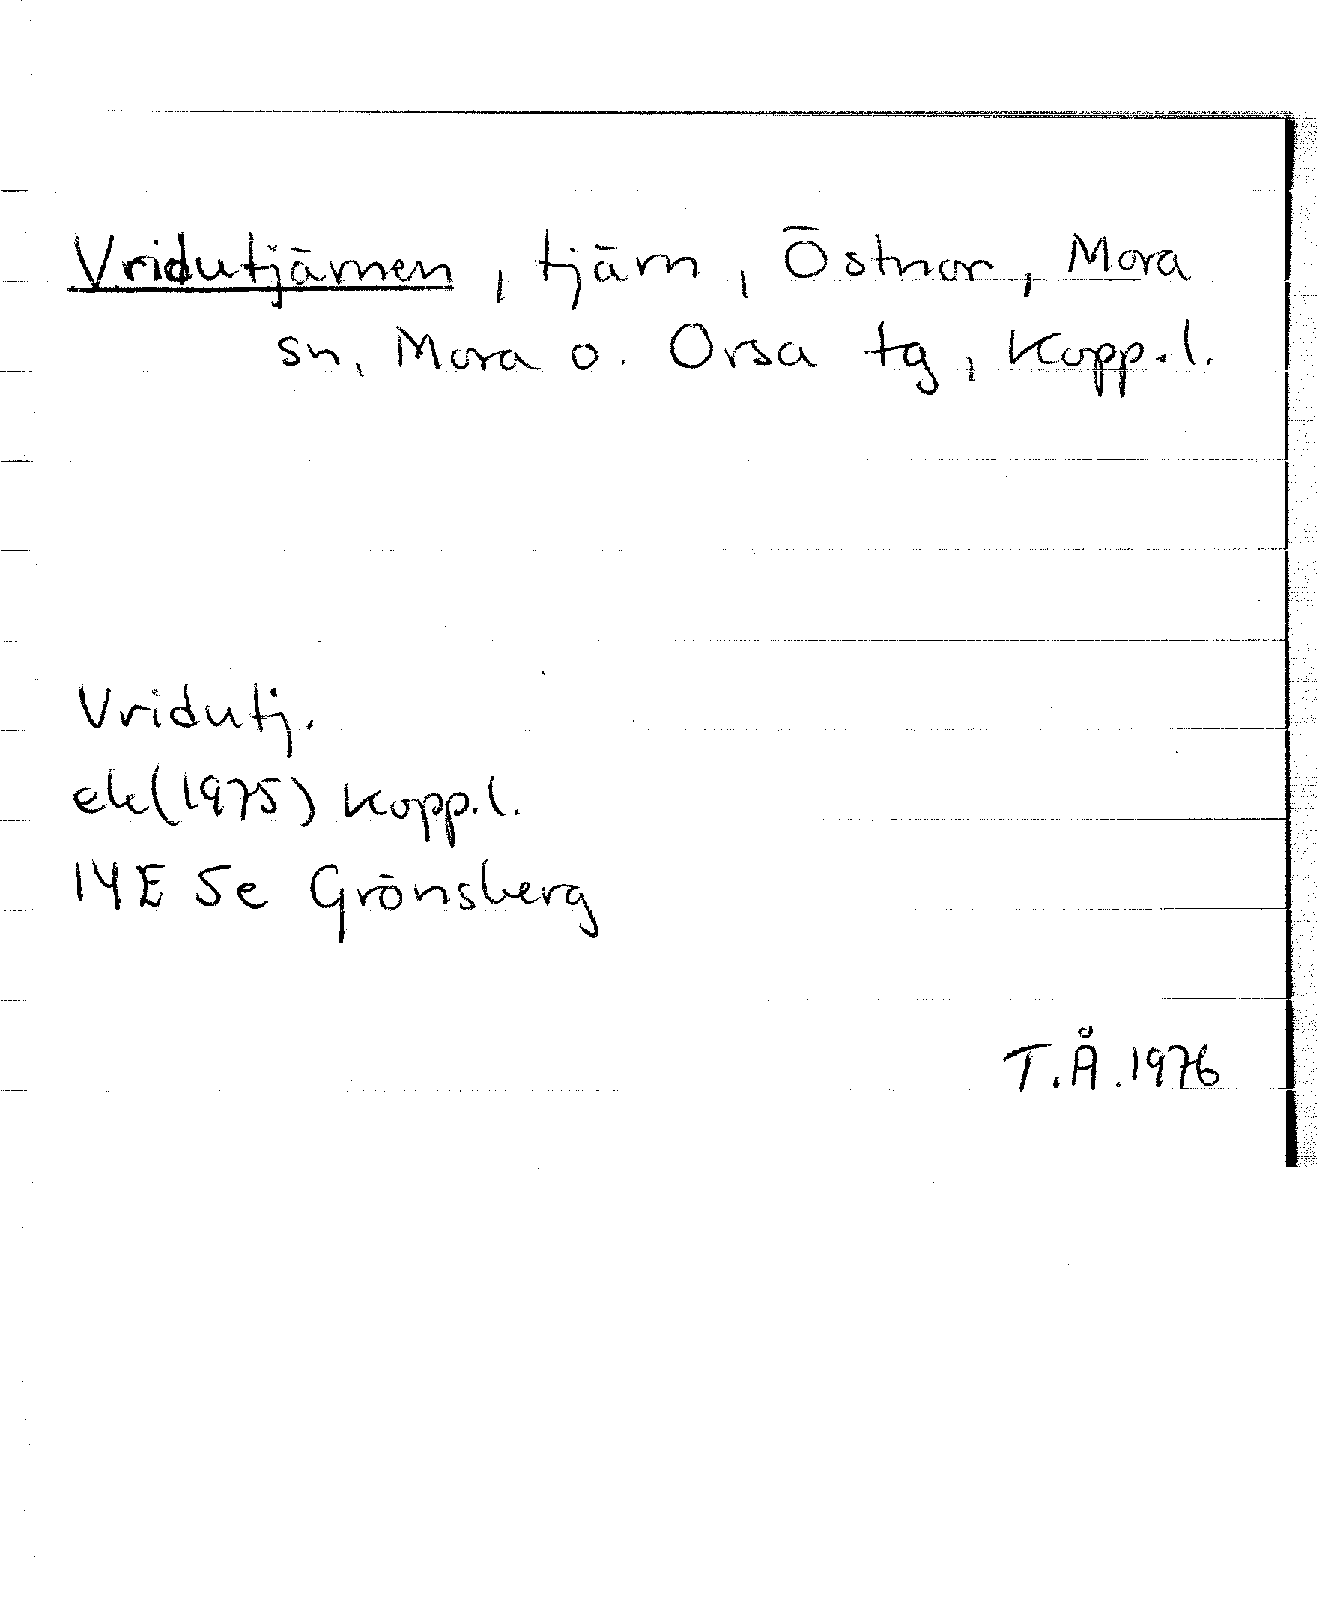 Vridutjärnen, tjärn, Östnor, Mora
sn, Mora o. Orsa tg, Kopp.l.
Vridutj.
ek(1975) Kopp.l.
14E 5e Grönsberg
T.Å.1976